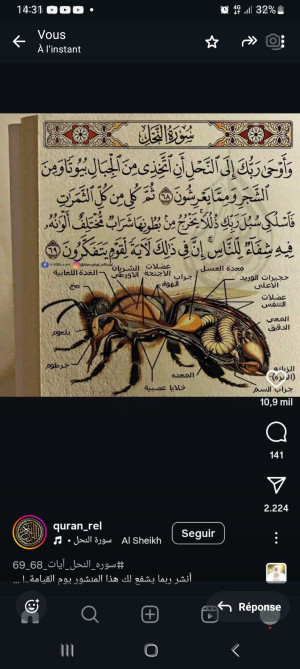 14:31
32%
Vous
À l'instant
سورة النحل
وَأَوْحَىٰ رَبُّكَ إِلَى ٱلنَّحْلِ أَنِ ٱتَّخِذِى مِنَ ٱلْجِبَالِ بُيُوتًا وَمِنَ
ٱلشَّجَرِ وَمِمَّا يَعْرِشُونَ ٦٨ ثُمَّ كُلِى مِن كُلِّ ٱلثَّمَرَٰتِ
فَٱسْلُكِى سُبُلَ رَبِّكِ ذُلُلًا يَخْرُجُ مِنۢ بُطُونِهَا شَرَابٌ مُّخْتَلِفٌ أَلْوَٰنُهُۥ
فِيهِ شِفَآءٌ لِّلنَّاسِ إِنَّ فِى ذَٰلِكَ لَـَٔايَةً لِّقَوْمٍ يَتَفَكَّرُونَ ٦٩
معدة العسل
عضلات الأجنحة
الشريان الأورطي
الغدة اللعابية
جراب الهواء
مخ
حجيرات الوريد الاعلى
عضلات التنفس
المعى الدقيق
بلعوم
خرطوم
خلايا عصبية
المعدة
جراب السم
10,9 mil
141
2.224
quran_rel
سورة النحل • Al Sheikh
Seguir
#سوره_النحل_آيات_68_69
أنشر ربما يشفع لك هذا المنشور يوم القيامة..! ...
Réponse